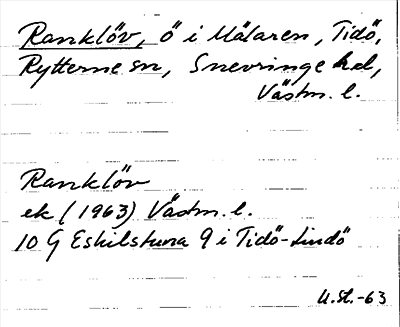 Ranklöv, ö i Mälaren, Tidö,
Rytterne sn, Snevringe hd,
Västm. l.
Ranklöv
ek (1963) Västm. l.
10 G Eskilstuna 9 i Tidö-Lindö
U.St.-63